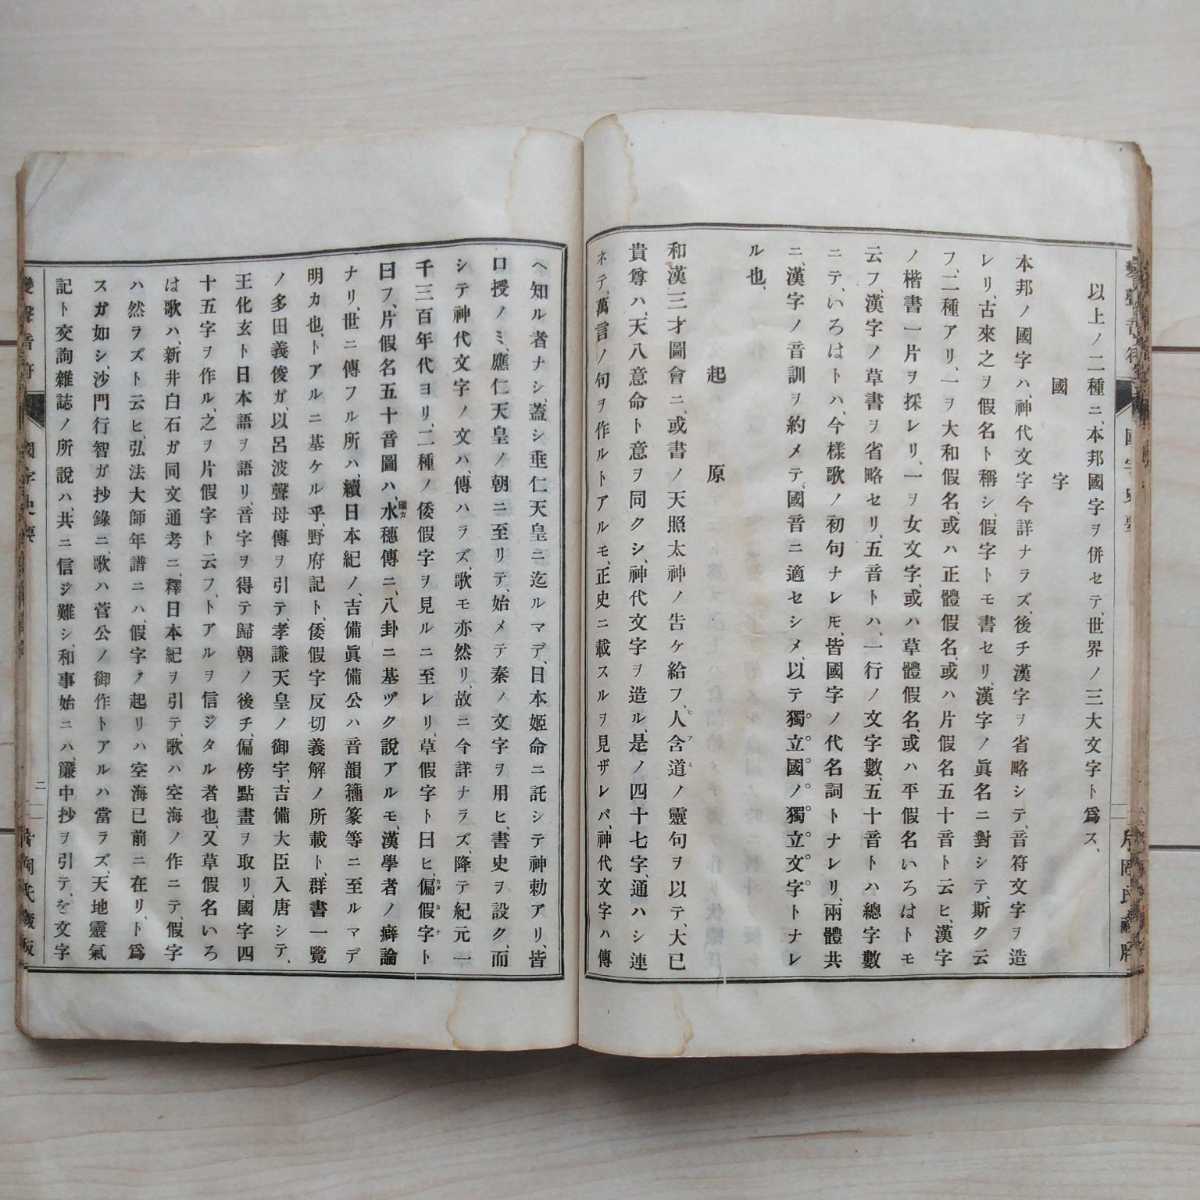 以上ノ二種ニ、本邦國字ヲ併セテ、世界ノ三大文字ト爲ス、
國字
本邦ノ國字ハ、神代文字今詳ナラズ、後チ漢字ヲ省略シテ、音符文字ヲ造
レリ、古來之ヲ假名ト稱シ、假字トモ書セリ、漢字ノ眞名ニ對シテ、斯ク云
フ、二種アリ、一ヲ大和假名、或ハ正體假名、或ハ片假名五十音ト云ヒ、漢字
ノ楷書一片ヲ採レリ、一ヲ女文字、或ハ草體假名、或ハ平假名いろはトモ
云フ、漢字ノ草書ヲ省略セリ、五音トハ、一行ノ文字數、五十音トハ總字數
ニテ、いろはトハ、今樣歌ノ初句ナレ𪜈、皆國字ノ代名詞トナレリ、兩體共
ニ、漢字ノ音訓ヲ約メテ、國音ニ適セシメ、以テ獨立國ノ獨立文字トナレ
ル也、
起原
和漢三才圖會ニ、或書ノ天照太神ノ告ケ給フ、人含道ノ靈句ヲ以テ、大已
貴尊ハ、天八意命ト意ヲ同クシ、神代文字ヲ造ル、是ノ四十七字、通ハシ連
ネテ、萬言ノ句ヲ作ルトアルモ、正史ニ載スルヲ見ザレバ、神代文字ハ傳
ヘ知ル者ナシ、蓋シ垂仁天皇ニ迄ルマデ、日本姬命ニ託シテ神勅アリ、皆
口授ノミ、應仁天皇ノ朝ニ至リテ、始メテ秦ノ文字ヲ用ヒ、書史ヲ設ク、而
シテ神代文字ノ文ハ、傳ハラズ、歌モ亦然リ、故ニ今詳ナラズ、降テ紀元一
千三百年代ヨリ、二種ノ倭假字ヲ見ルニ至レリ、草假字ト曰ヒ、偏假字ト
曰フ、片假名五十音圖ハ、水穗傳ニ、八卦ニ基ヅク說アルモ、漢學者ノ癖論
ナリ、世ニ傳フル所ハ、續日本紀ノ、吉備眞備公ハ音韻籀篆等ニ至ルマデ
明カ也、トアルニ基ケル乎、野府記ト、倭假字反切義解ノ所載ト、群書一覽
ノ多田義俊ガ、以呂波聲母傳ヲ引テ、孝謙天皇ノ御宇、吉備大臣入唐シテ、
王化玄ト日本語ヲ語リ、音字ヲ得テ歸朝ノ後チ、偏傍點畫ヲ取リ、國字四
十五字ヲ作ル、之ヲ片假字ト云フ、トアルヲ信ジタル者也、又草假名いろ
は歌ハ、新井白石ガ同文通考ニ、釋日本紀ヲ引テ、歌ハ空海ノ作ニテ、假字
ハ然ヲズト云ヒ、弘法大師年譜ニハ、假字ノ起リハ空海已前ニ在リ、ト爲
スガ如シ、沙門行智ガ抄錄ニ、歌ハ菅公ノ御作トアルハ當ラズ、天地靈氣
記ト交詢雜誌ノ所說ハ、共ニ信ジ難シ、和事始ニハ、簾中抄ヲ引テ、を文字
國字史要
二